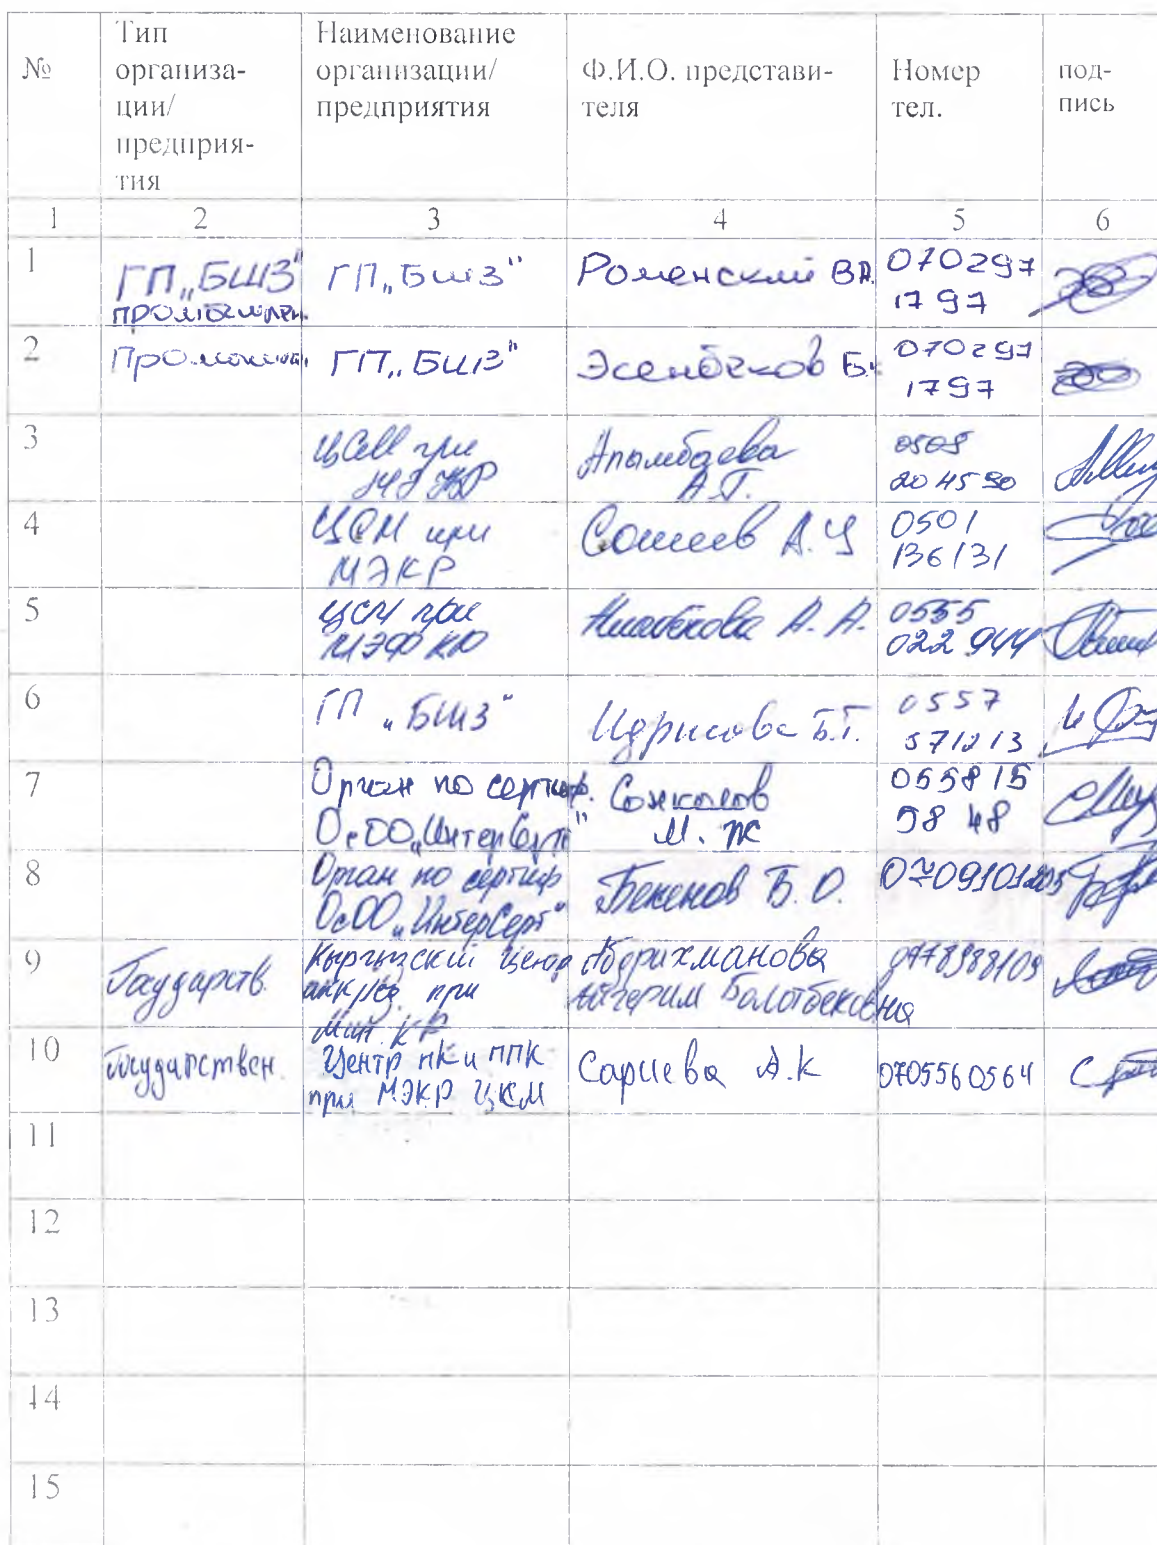 №
Тип
организа-
ции/
предприя-
тия
Наименование
организации/
предприятия
Ф.И.О. представи-
теля
Номер
тел.
под-
пись
1 2 3 4 5 6
1
ГП „БШЗ"
ГП „БШЗ"
Роменский В.А.
070297
1797
2
ГП „БШЗ"
Эсенбеков Б.
070297
1797
3
ЦСМ при
Апымбаева
А.Т.
0505
204590
4
ЦСМ при
МЭКР
А.Ч
0501
136131
5
ЦСМ при
МЭФ КР
А. А.
0555
022 944
6
ГП „БШЗ"
Идрисова Б.Т.
0557
571213
7
Орган по сертиф.
ОсОО „ИнтерСерт"
Сонколов
М. Ж
055815
98 48
8
Орган по сертиф
ОсОО „ИнтерСерт"
Бекенов Б. О.
9
Государств.
Кыргызский центр
при
Мин. КР
Абдрахманова
Айгерим Болотбековна
10
Государствен.
Центр ПК и ППК
при МЭКР ЦКМ
Сариева А.К
0705560564
11
12
13
14
15